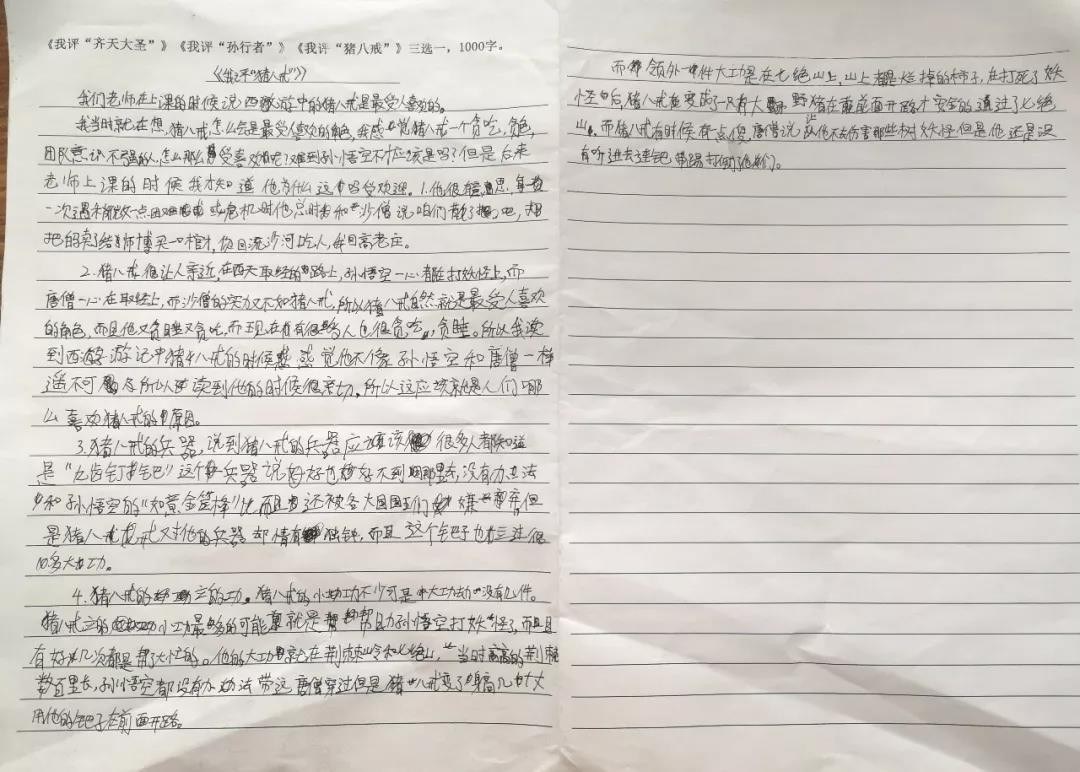 《我评“齐天大圣”》《我评“孙行者”》《我评“猪八戒”》三选一，1000字。
《我评“猪八戒”》
我们老师在上课的时候说西游中的猪八戒是最受人喜欢的。
我当时就在想，猪八戒怎么会是最受人喜欢的角色，我感觉猪八戒一个贪吃，贪色，
团队意识不强的人，怎么那么受喜欢呢？难到孙悟空不应该是吗？但是后来
老师上课的时候我才知道他为什么这吗受欢迎。1.他很有意思，每
一次遇到一点困难或危机时他总时和沙僧说咱们散了吧，
把的卖了给师博买一口棺材，你回流沙河吃人，我回高老庄。
2.猪八戒很让人亲近，在西天取经的路上，孙悟空一心都在打妖怪上，而
唐僧一心在取经上，而沙僧的实力又不如猪八戒，所以猪八戒自然就是最受人喜欢
的角色，而且他又贪睡又贪吃，而现在有很多人也很贪吃，贪睡。所以我读
到西游记中猪八戒的时候感觉他不像孙悟空和唐僧一样
遥不可及所以读到他的时候很亲切，所以这应该就是人们那
么喜欢猪八戒的原因。
3.猪八戒的兵器，说到猪八戒的兵器应该很多人都知道
是“九齿钉钯”这个兵器说好也好不到那里去，没有办法
和孙悟空的“如意金箍棒”比而且还被各大国王们嫌弃但
是猪八戒又对他的兵器却情有独钟，而且这个钯子也立过很
多大功。
4.猪八戒的立的功。猪八戒的小功不少可是大功却没有几件。
猪八戒立的小功最多的可能就是帮助孙悟空打妖怪了，而且
有好几次都是帮了大忙的。他的大功就在荆棘岭和七绝山，当时高高的荆棘
数百里长，孙悟空都没有办法带这唐僧穿过但是猪八戒变了身高几十丈
用他的钯子在前面开路。
而领外一件大功是在七绝山上，山上都是烂掉的柿子，在打死了妖
怪后，猪八戒变成了一只有大野猪在前面开路才安全的通过了七绝
山。而猪八戒有时候有点傻，唐僧说让他不伤害那些树妖怪但是他还是没
有听进去连钯带踢打倒了他们。